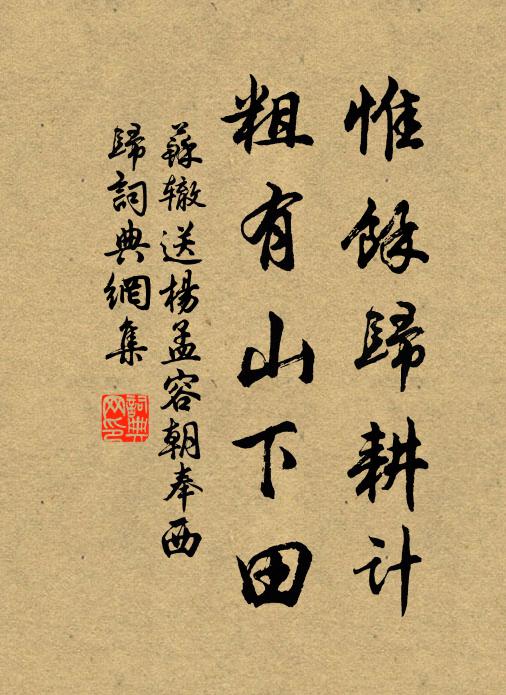 惟餘歸耕计
粗有山下田
蘇辙送楊孟容朝奉西
歸詞典網集
詞典
网印